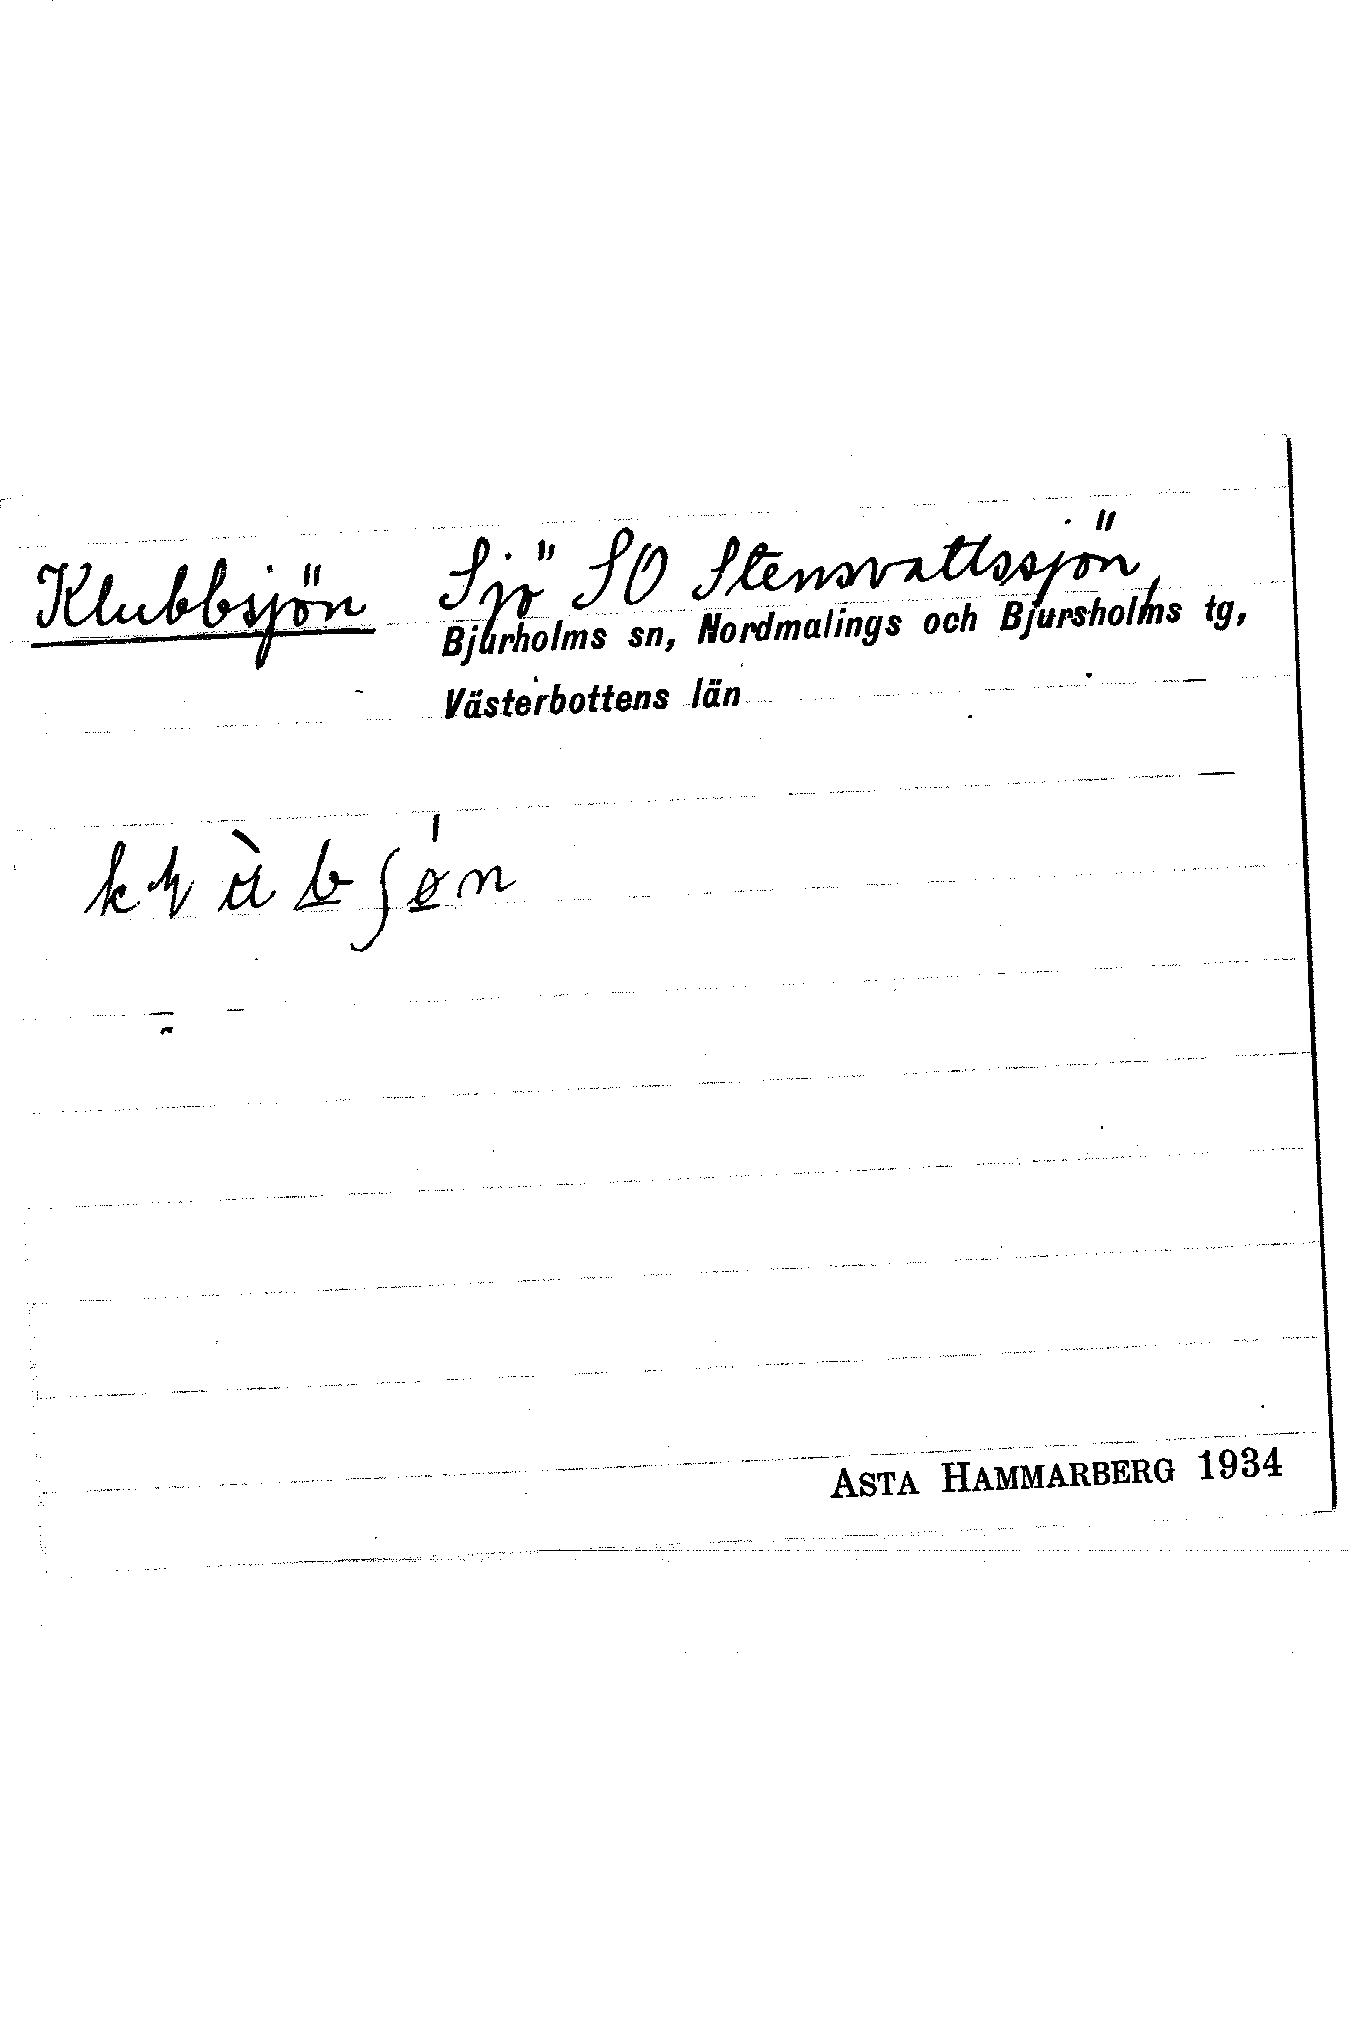 Klubbsjön Sjö SO Stensvattssjön,
Bjurholms sn, Nordmalings och Bjursholms tg,
Västerbottens län
ASTA HAMMARBERG 1934